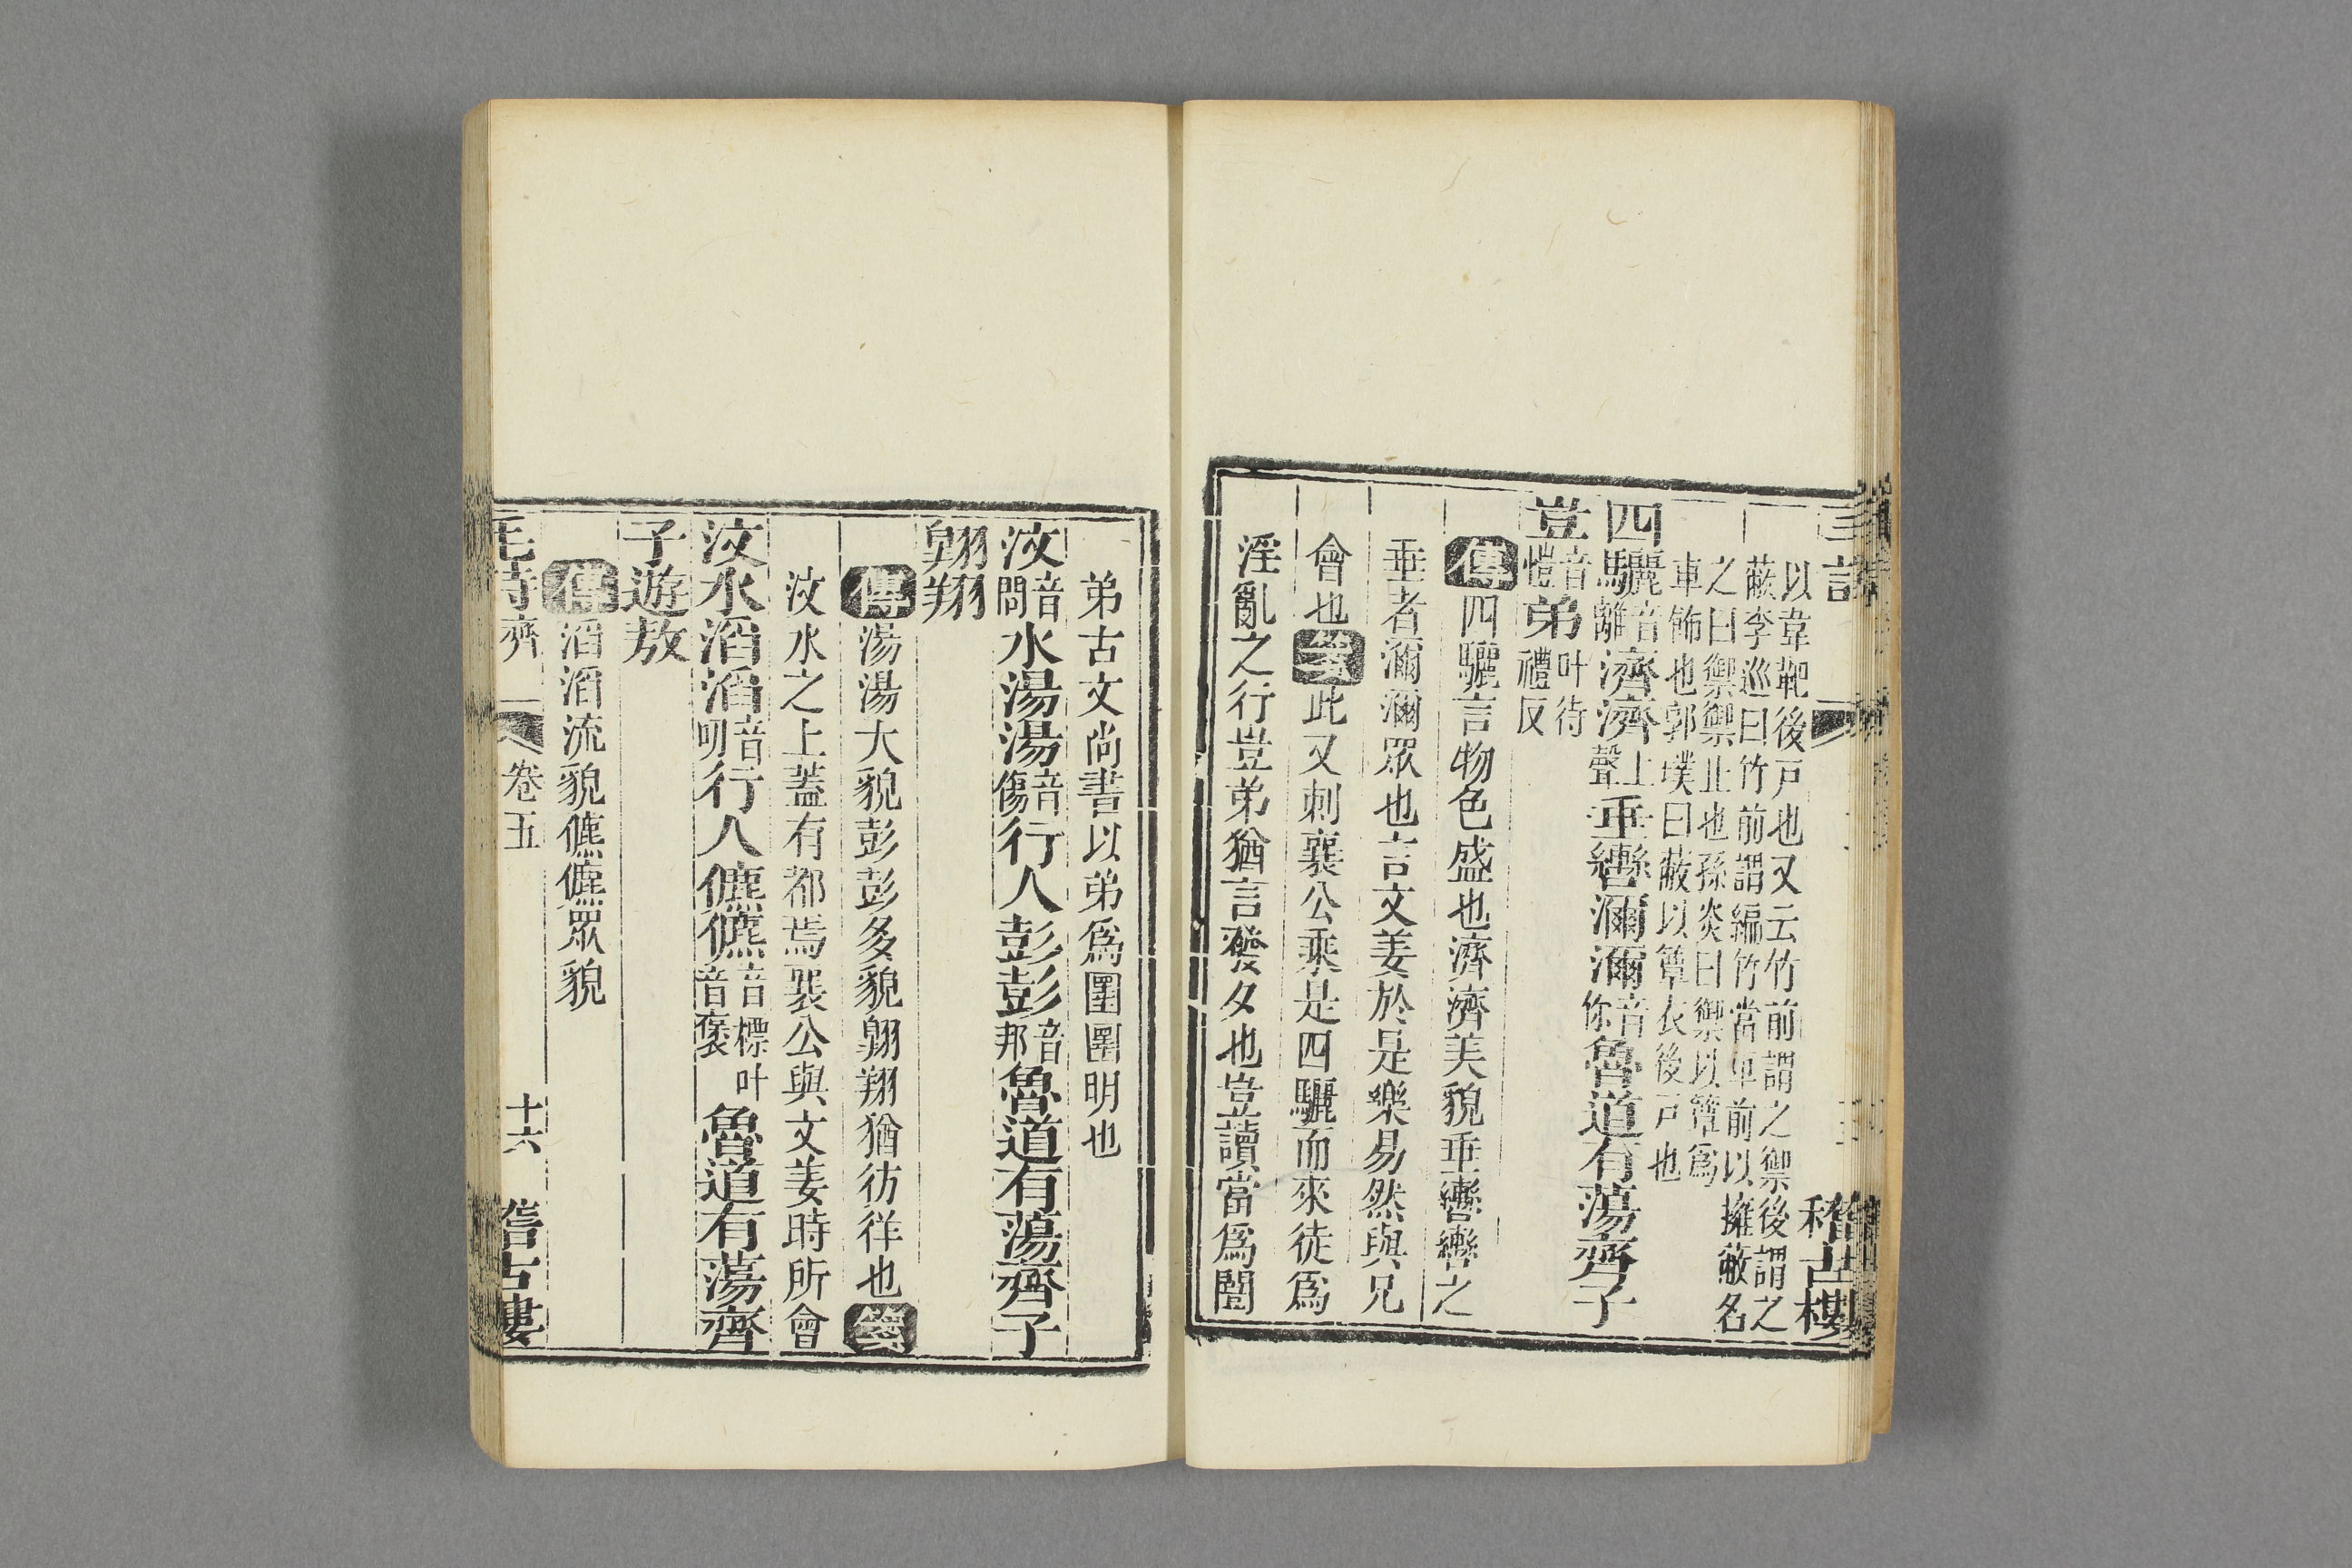 以韋靶後戸也又云竹前謂之禦後謂之
蔽李巡曰竹前謂編竹當車前以擁蔽名
之曰禦禦止也孫炎曰禦以簟爲
車飾也郭璞曰蔽以簟衣後戸也
四驪音離濟濟上聲垂轡濔濔音你魯道有蕩齊子
豈音愷弟叶待禮反
傳四驪言物色盛也濟濟美貌垂轡轡之
垂者濔濔眾也言文姜於是樂易然與兄
會也箋此又刺襄公乘是四驪而來徒爲
淫亂之行豈弟猶言發夕也豈讀當爲闓
弟古文尚書以弟爲圛圛明也
汶音問水湯湯音傷行人彭彭音邦魯道有蕩齊子
翺翔
傳湯湯大貌彭彭多貌翺翔猶彷徉也箋
汶水之上蓋有都焉襄公與文姜時所會
汶水滔滔音叨行人儦儦音標叶音褒魯道有蕩齊
子遊敖
傳滔滔流貌儦儦眾貌
毛詩齊 卷五 十六 稽古樓